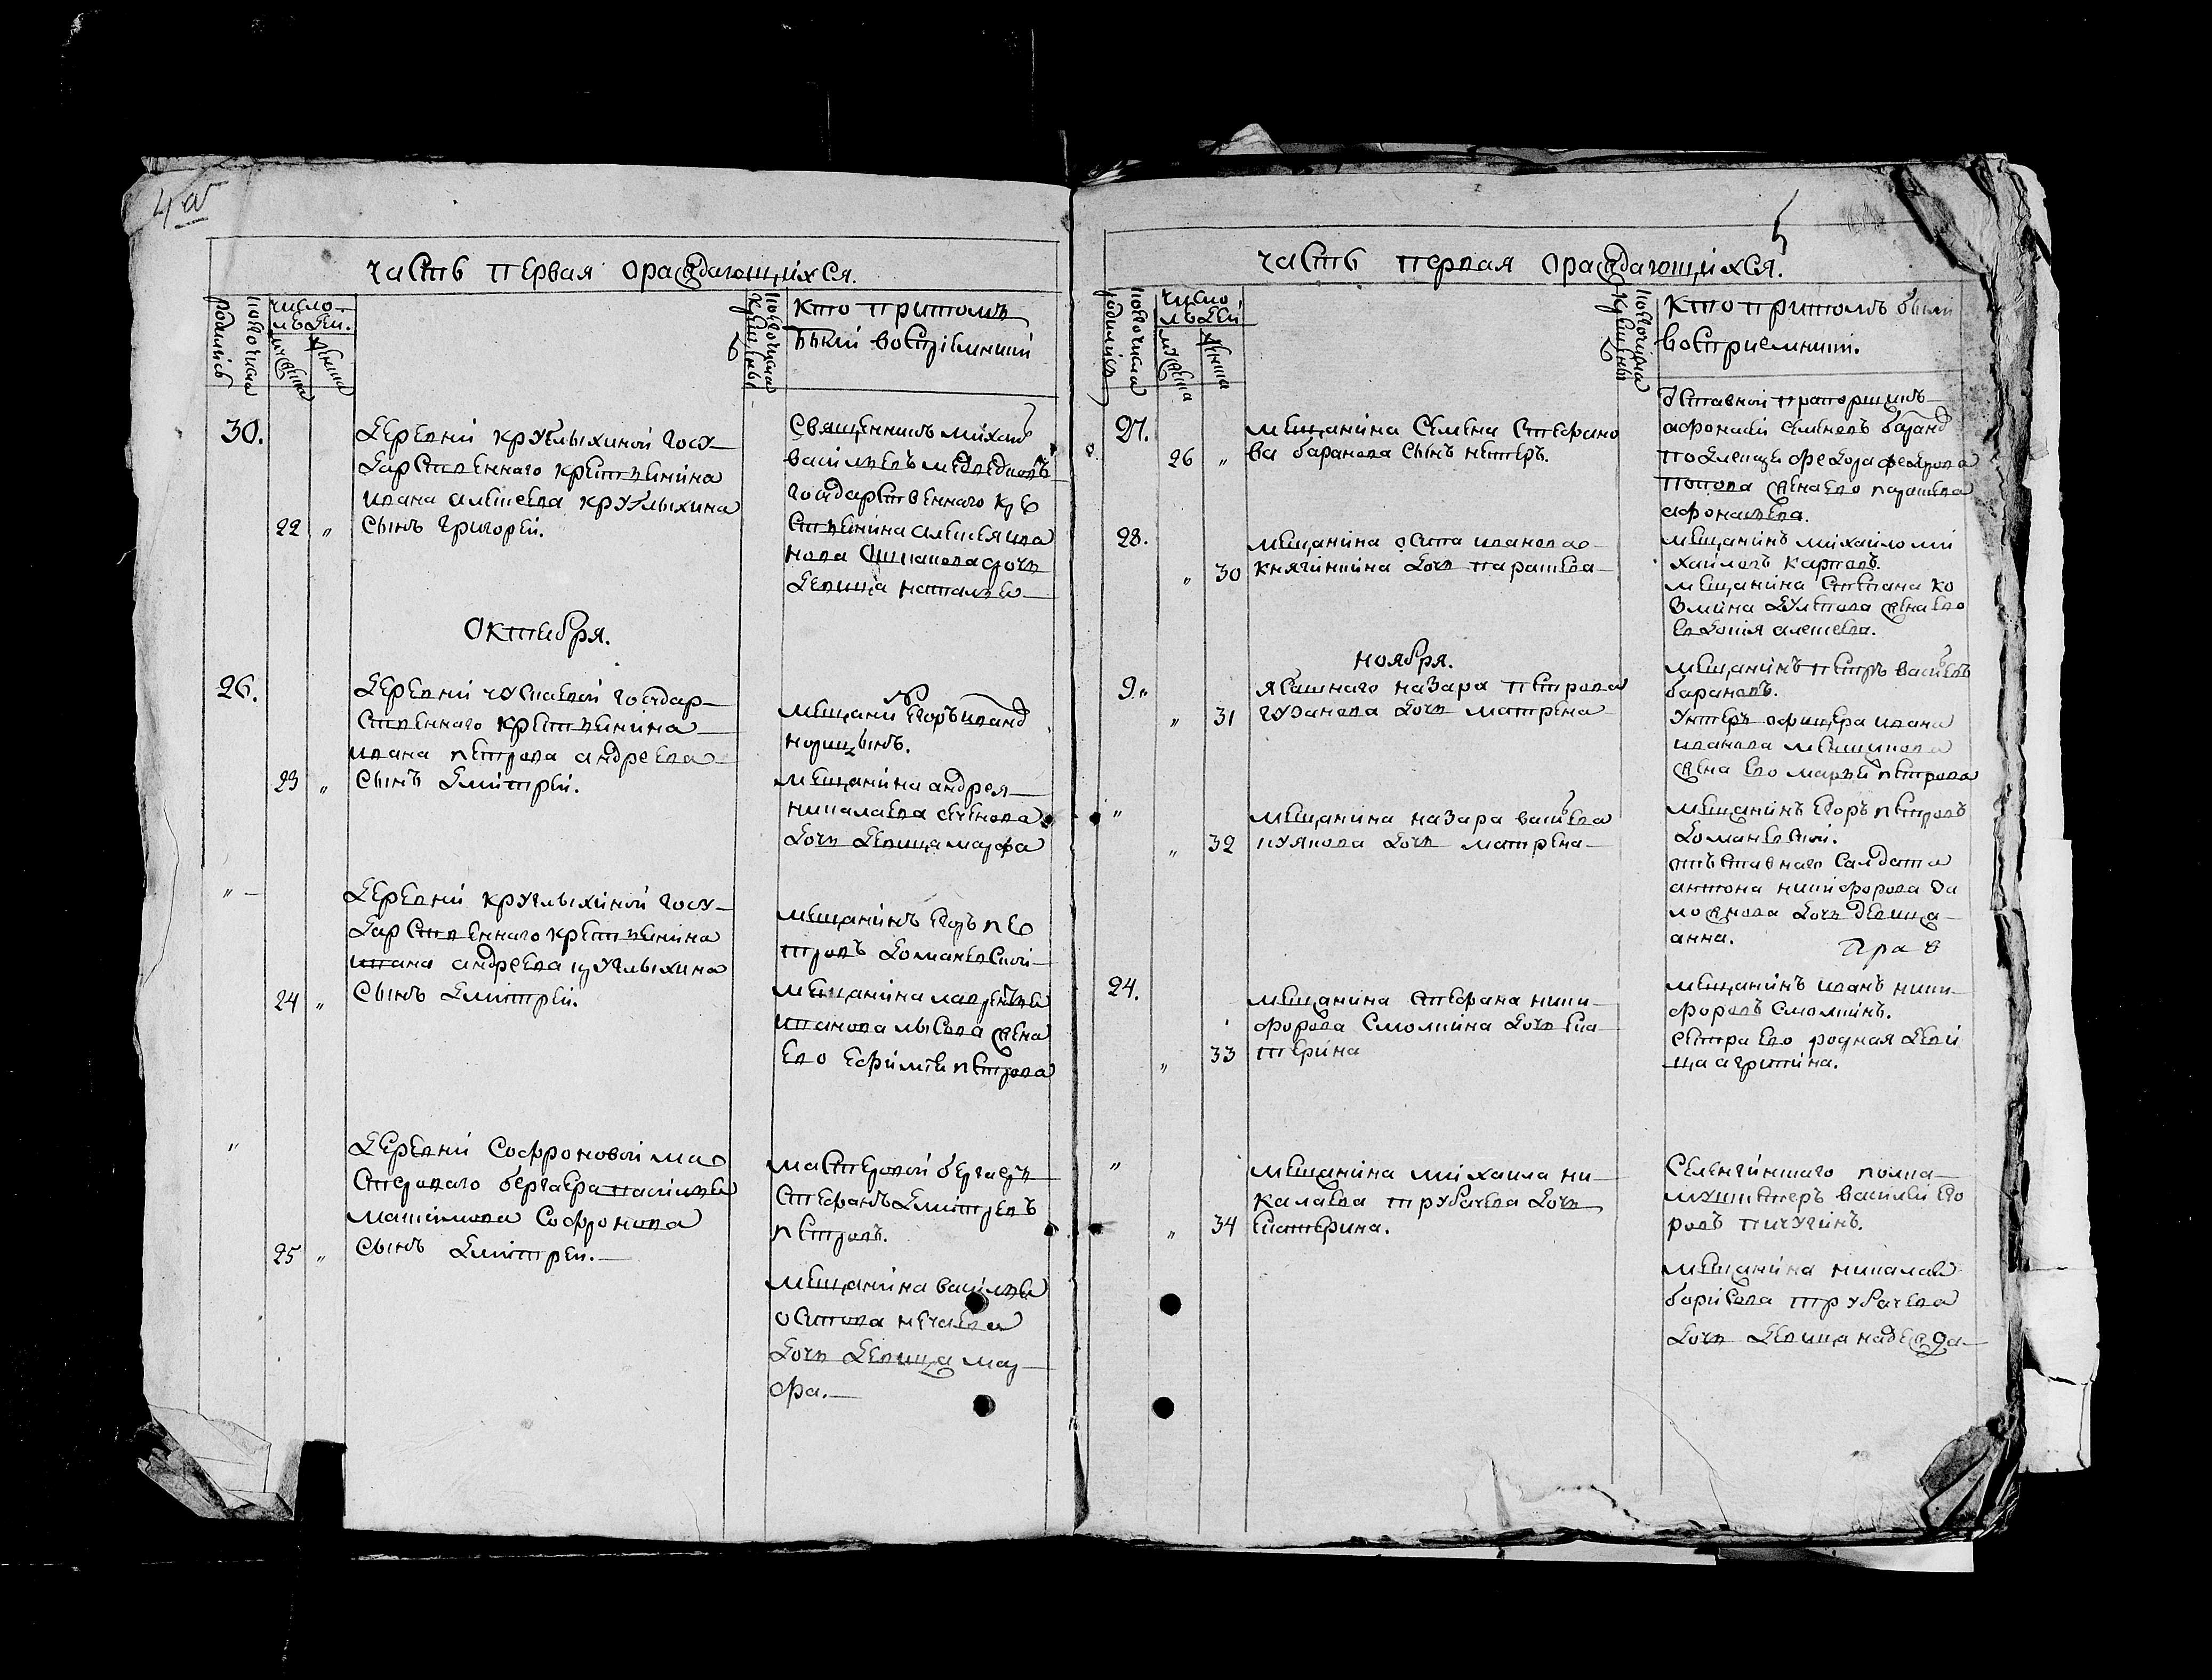 4 об
часть первая ораждающихся.
которочисла родились
число людей.
мужеска
женска
которочисла крещены
кто притомъ
были воспріемники
30.
деревни круглыхиной госу
дарственнаго крестьянина
ивана алексеева круглыхина
22 „ сынъ григорей.
священникъ михаилъ
васильевъ медведковъ
государственнаго кре
стьянина алексея ива
нова дочь
девица наталья
октября.
26.
деревни государ
ственнаго крестьянина
ивана петрова андреева
23 „ сынъ дмитрей.
мещанинъ егоръ иванов
норицынъ.
мещанина андрея
николаева
дочь девица марфа
„
деревни круглыхиной госу
дарственнаго крестьянина
ивана андреева круглыхина
24 „ сынъ дмитрей.
мещанинъ егоръ пе
тровъ доманевской
мещанина лаврентья
иванова лысова жена
ево ефимья петрова
„
деревни софроновой мас
tероваго бергаера василья
максимова софронова
25 „ сынъ дмитрей.
мастеровой бергаеръ
стефанъ дмитревъ
петровъ.
мещанина василья
осипова нечаева
дочь девица мар
фа.
5
часть первая ораждающихся.
которочисла родились
число людей
мужеска
женска
которочисла крещены
кто притомъ были
восприемники.
27.
мещанина семена стефано
26 „ ва баранова сынъ петръ.
отставной прапорщикъ
афонасей семеновъ
федора федорова
попова жена ево парасковья
афонасьева.
28.
мещанина осипа иванова
„ 30 княгинина дочь парасковья
мещанинъ михайло ми
хайловъ карповъ.
мещанина степана ко
змина жена ево
евдокия алексеева.
ноября.
9 „
ясашнаго назара петрова
„ 31 гузанова дочь матрена
мещанинъ петръ васильевъ
барановъ.
унтеръ офицера ивана
иванова мешукова
жена ево марья петрова
„
мещанина назара васильева
„ 32 пуякова дочь матрена
мещанинъ егоръ петровъ
доманевской.
отставнаго салдата
антона никифорова за
ложнова дочь девица
анна.
24.
мещанина стефана ники
форова смолкина дочь ека
„ 33 терина
мещанинъ иванъ ники
форовъ смолкинъ.
сестра ево родная деви
ца агрипина.
„
мещанина михаила ни
калаева трубачева дочь
„ 34 екатерина.
селенгинскаго полка
мушкетеръ василей его
ровъ пичугинъ.
мещанина николая
борисова трубачева
дочь девица надежда